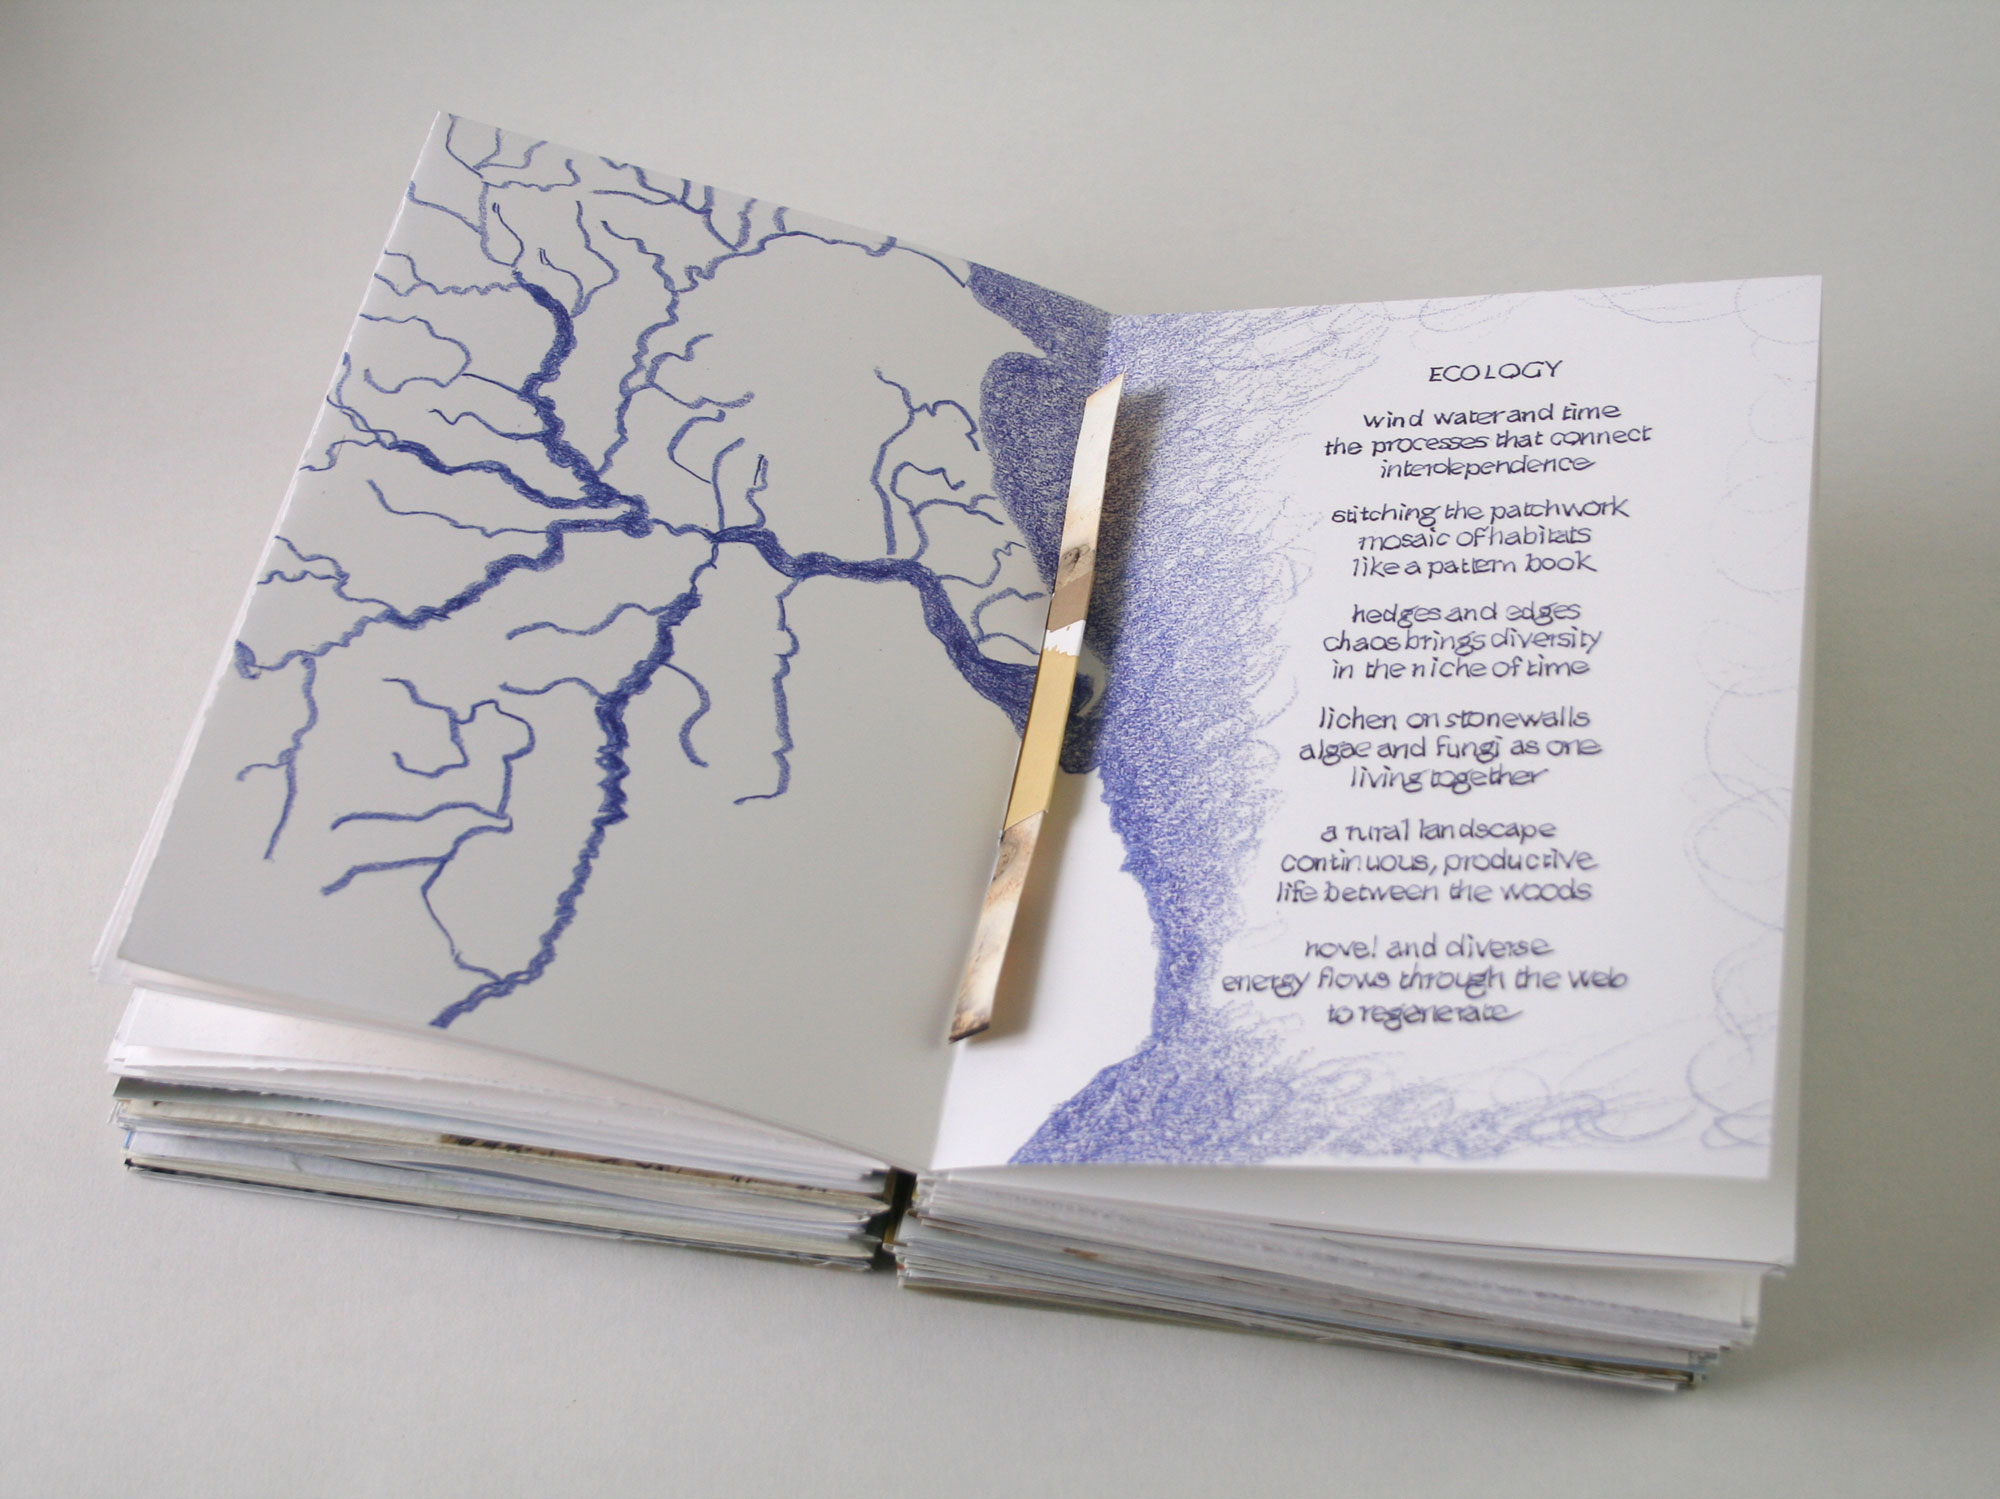 ECOLOGY
wind water and time
the processes that connect
interdependence
stitching the patchwork
mosaic of habitats
like a pattern book
hedges and edges
chaos brings diversity
in the niche of time
lichen on stonewalls
algae and fungi as one
living together
a rural landscape
continuous, productive
life between the woods
novel and diverse
energy flows through the web
to regenerate